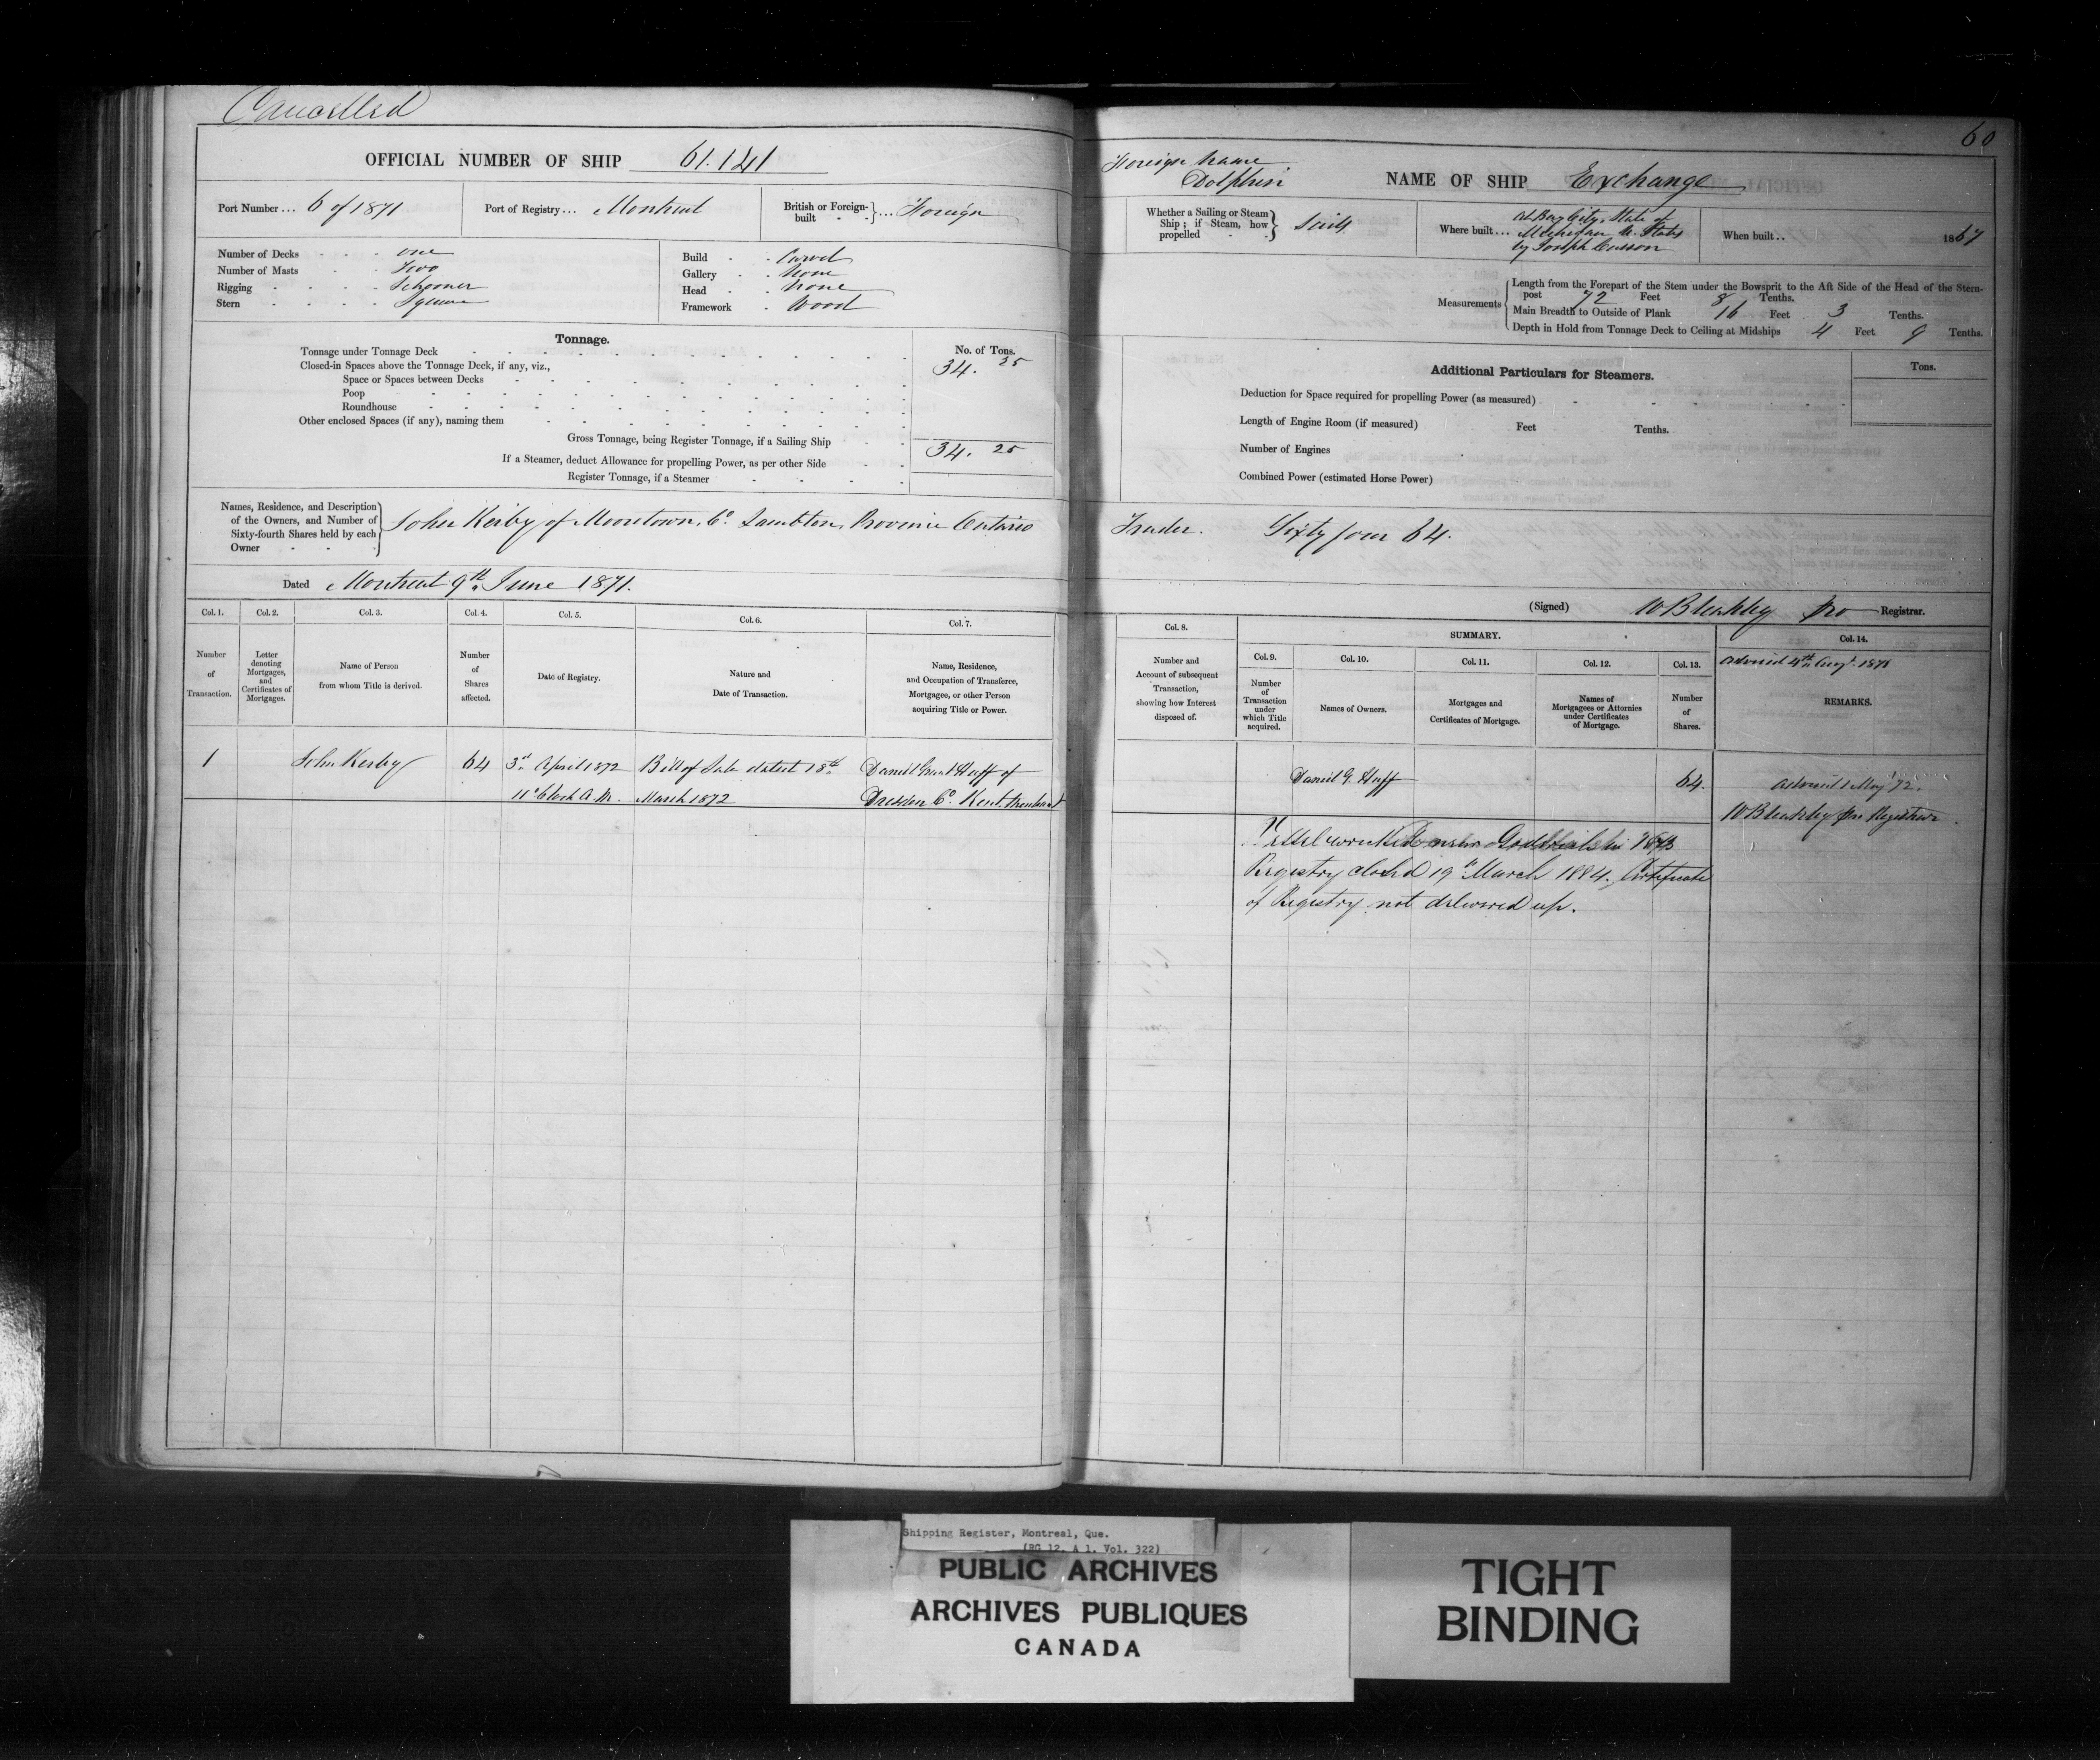 Cancelled
OFFICIAL NUMBER OF SHIP 61.141
Port Number ... 6 of 1871
Port of Registry ... Montreal
British or Foreign-built ... Foreign
Number of Decks One
Number of Masts Two
Rigging Schooner
Stern Square
Build Carvel
Gallery None
Head None
Framework Wood
Tonnage.
No. of Tons.
Tonnage under Tonnage Deck 34. 25
Closed-in Spaces above the Tonnage Deck, if any, viz.,
Space or Spaces between Decks
Poop
Roundhouse
Other enclosed Spaces (if any), naming them
Gross Tonnage, being Register Tonnage, if a Sailing Ship 34. 25
If a Steamer, deduct Allowance for propelling Power, as per other Side
Register Tonnage, if a Steamer
Names, Residence, and Description
of the Owners, and Number of
Sixty-fourth Shares held by each
Owner
John Kerby of Mooretown, Co. Lambton, Province Ontario
Dated Montreal 9th June 1871.
Col. 1.
Number
of
Transaction.
Col. 2.
Letter
denoting
Mortgages,
and
Certificates of
Mortgages.
Col. 3.
Name of Person
from whom Title is derived.
Col. 4.
Number
of
Shares
affected.
Col. 5.
Date of Registry.
Col. 6.
Nature and
Date of Transaction.
Col. 7.
Name, Residence,
and Occupation of Transferee,
Mortgagee, or other Person
acquiring Title or Power.
1 John Kerby 64 3rd April 1872 Bill of Sale dated 18th Daniel Grant Huff of
11 o'Clock A.M. March 1872 Dresden Co. Kent.
60
Foreign Name
Dolphin
NAME OF SHIP Exchange
Whether a Sailing or Steam
Ship; if Steam, how
propelled
Sailg
Where built ...
At Bay City, State of
Michigan U. States
by Joseph
When built .. 1867
Measurements
Length from the Forepart of the Stem under the Bowsprit to the Aft Side of the Head of the Stern-
post 72 Feet 8 Tenths.
Main Breadth to Outside of Plank 16 Feet 3 Tenths.
Depth in Hold from Tonnage Deck to Ceiling at Midships 4 Feet 9 Tenths.
Additional Particulars for Steamers.
Tons.
Deduction for Space required for propelling Power (as measured)
Length of Engine Room (if measured) Feet Tenths.
Number of Engines
Combined Power (estimated Horse Power)
Trader. Sixty four 64.
(Signed) W Bleakley pro Registrar.
Col. 8.
Number and
Account of subsequent
Transaction,
showing how Interest
disposed of.
SUMMARY.
Col. 9.
Number
of
Transaction
under
which Title
acquired.
Col. 10.
Names of Owners.
Col. 11.
Mortgages and
Certificates of Mortgage.
Col. 12.
Names of
Mortgagees or Attornies
under Certificates
of Mortgage.
Col. 13.
Number
of
Shares.
Col. 14.
Advised 4th Augt. 1871
REMARKS.
Daniel G. Huff 64.
Advised 1 May '72.
W Bleakley pro Registrar
Vessel wrecked near in 1873
Registry closed 19th March 1884. Certificate
of Registry not delivered up.
Shipping Register, Montreal, Que.
(RG 12, A 1, Vol. 322)
PUBLIC ARCHIVES
ARCHIVES PUBLIQUES
CANADA
TIGHT
BINDING